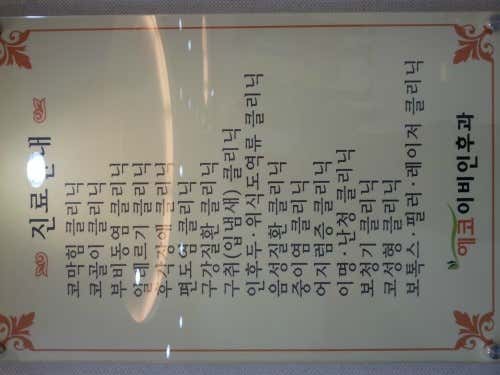 진료안내
코막힘 클리닉
코골이 클리닉
부비동염 클리닉
알레르기 클리닉
후각장애 클리닉
편도염 클리닉
구강질환 클리닉
구취(입냄새) 클리닉
인후두·위식도역류 클리닉
음성질환 클리닉
중이염 클리닉
어지럼증 클리닉
이명·난청 클리닉
보청기 클리닉
코성형 클리닉
보톡스·필러·레이저 클리닉
에코 이비인후과